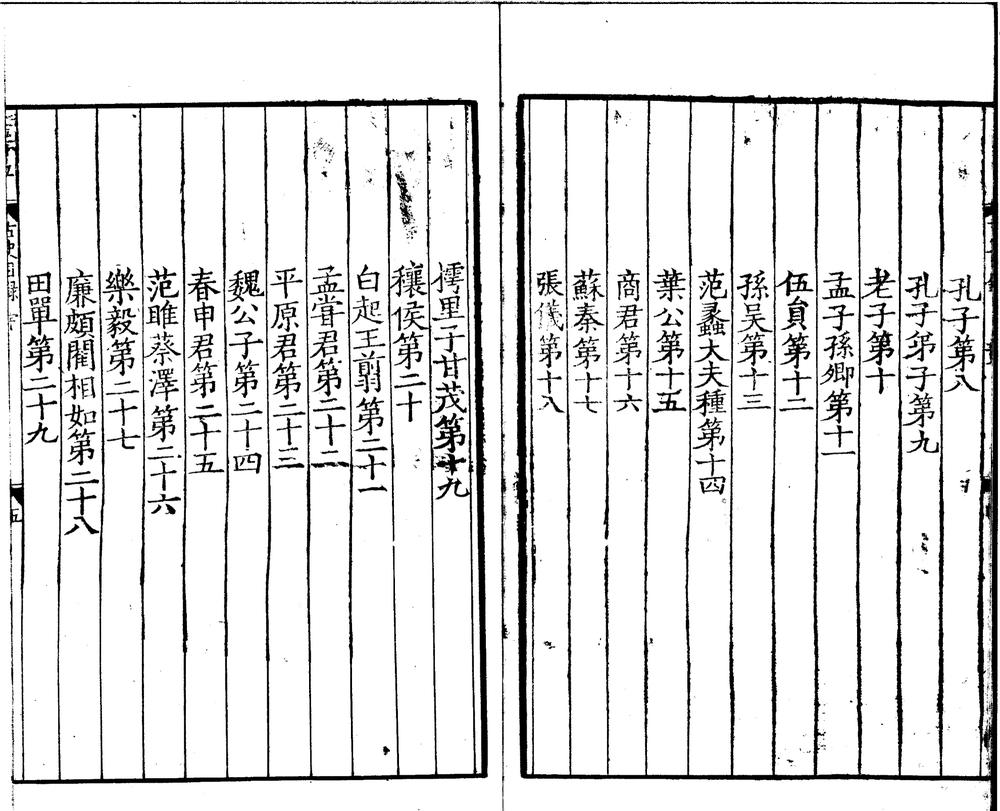 孔子第八
孔子弟子第九
老子第十
孟子孫卿第十一
伍員第十二
孫吳第十三
范蠡大夫種第十四
葉公第十五
商君第十六
蘇秦第十七
張儀第十八
樗里子甘茂第十九
穰侯第二十
白起王翦第二十一
孟甞君第二十二
平原君第二十三
魏公子第二十四
春申君第二十五
范睢蔡澤第二十六
樂毅第二十七
廉頗藺相如第二十八
田單第二十九
古史目錄
五